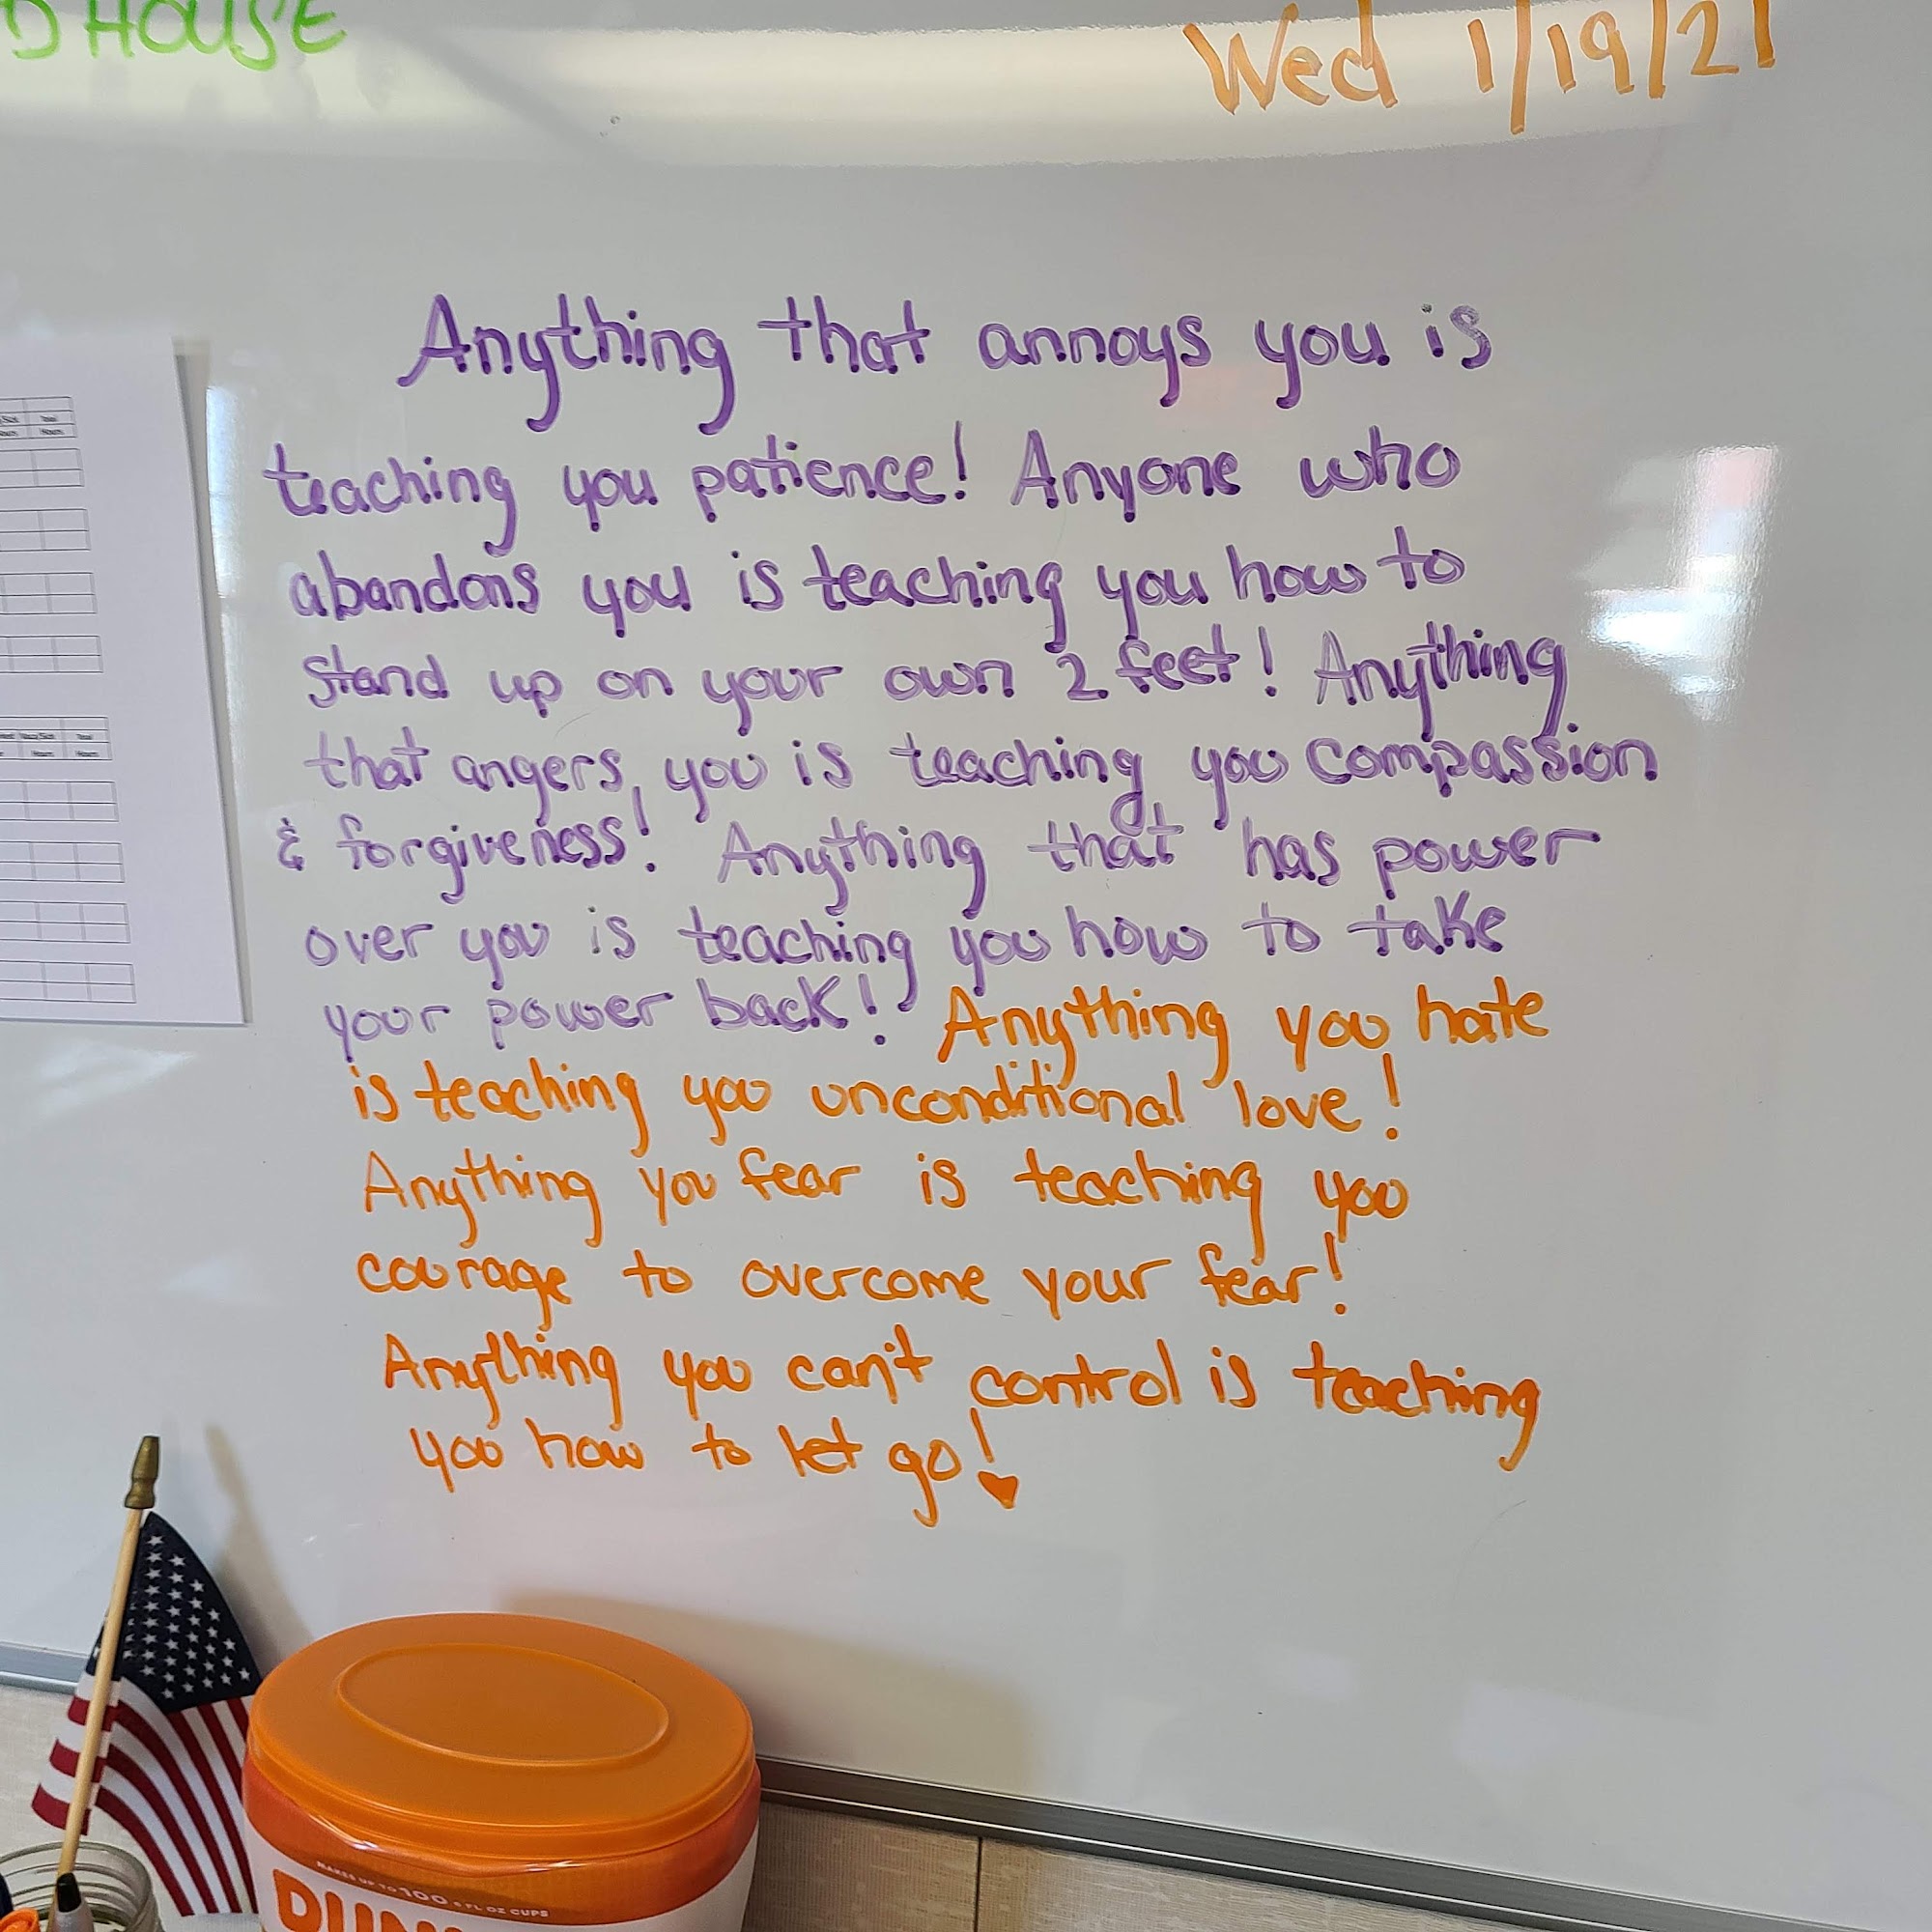 D HOUSE
Wed 1/19/21
Anything that annoys you is
teaching you patience! Anyone who
abandons you is teaching you how to
stand up on your own 2 feet! Anything
that angers you is teaching you compassion
& forgiveness! Anything that has power
over you is teaching you how to take
your power back! Anything you hate
is teaching you unconditional love!
Anything you fear is teaching you
courage to overcome your fear!
Anything you can't control is teaching
you how to let go!
Total
Hours
Total
Hours Hours
MAKES UP TO 100 6 FL OZ CUPS
DUN